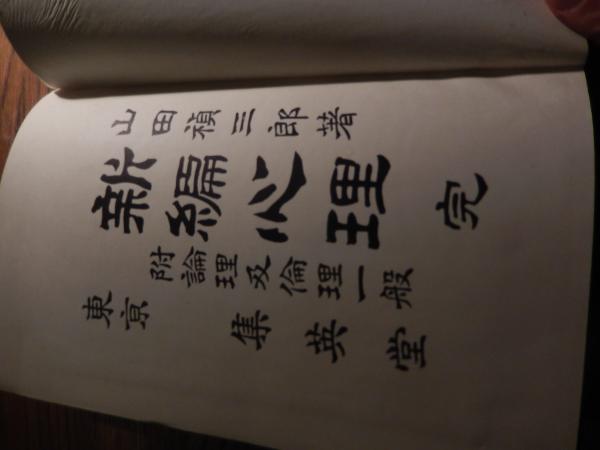 山田禎三郎著
新編心理 完
附論理及倫理一般
東京 集英堂